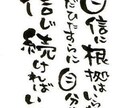 自信に根拠はいら
だひたすらに自分
信じ続ければい